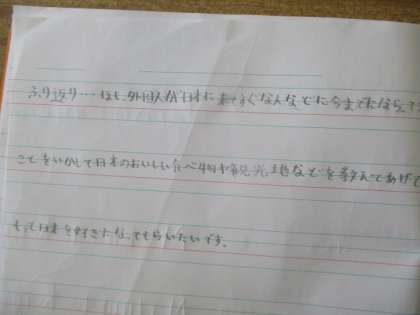 ふり返り…もし、外国人が日本に来てすぐなんなどに今まで習った
ことをいかして日本のおいしい食べ物や観光地などを教えてあげて
もっと日本を好きになってもらいたいです。